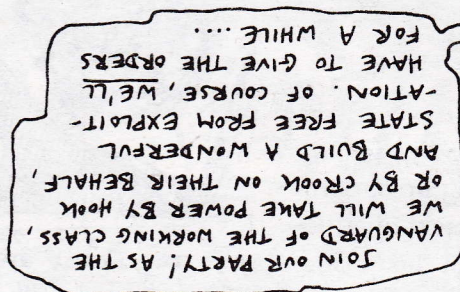 JOIN OUR PARTY! AS THE
VANGUARD OF THE WORKING CLASS,
WE WILL TAKE POWER BY HOOK
OR BY CROOK ON THEIR BEHALF,
AND BUILD A WONDERFUL
STATE FREE FROM EXPLOIT-
-ATION. OF COURSE, WE'LL
HAVE TO GIVE THE ORDERS
FOR A WHILE ....